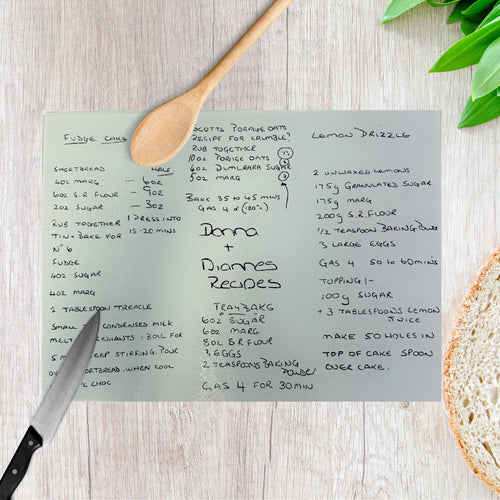 FUDGE CAKE
SHORTBREAD HALF
4OZ MARG — 6OZ
6OZ S.R FLOUR — 9OZ
2OZ SUGAR — 3OZ
RUB TOGETHER | PRESS INTO
TIN & BAKE FOR 15-20 MINS
Nº 6
FUDGE
4OZ SUGAR
4OZ MARG
2 TABLESPOON TREACLE
SMALL CONDENSED MILK
MELT REDIANTS : BOIL FOR
5 M EEP STIRRING. POUR
OV RTBREAD. WHEN COOL
CHOC
SCOTTS PORAGE OATS
RECIPE FOR CRUMBLE?
RUB TOGETHER
10OZ PORIGE OATS
4OZ DEMLRARA SUGAR
5OZ MARG
BAKE 35 TO 45 MINS
GAS 4 (180°C)
Donna
+
Diannes
Recipes
TRAYBAKE
6OZ SUGAR
6OZ MARG
8OZ S.R FLOUR
3 EGGS
2 TEASPOONS BAKING
POWDER
GAS 4 FOR 30MIN
LEMON DRIZZLE
2 UNWAXED LEMONS
175g GRANULATED SUGAR
175g MARG
200g S.R.FLOUR
1/2 TEASPOON BAKING POWD
3 LARGE EGGS
GAS 4 50 TO 60MINS
TOPPING :-
100g SUGAR
+ 3 TABLESPOONS LEMON
JUICE
MAKE 50 HOLES IN
TOP OF CAKE SPOON
OVER CAKE.